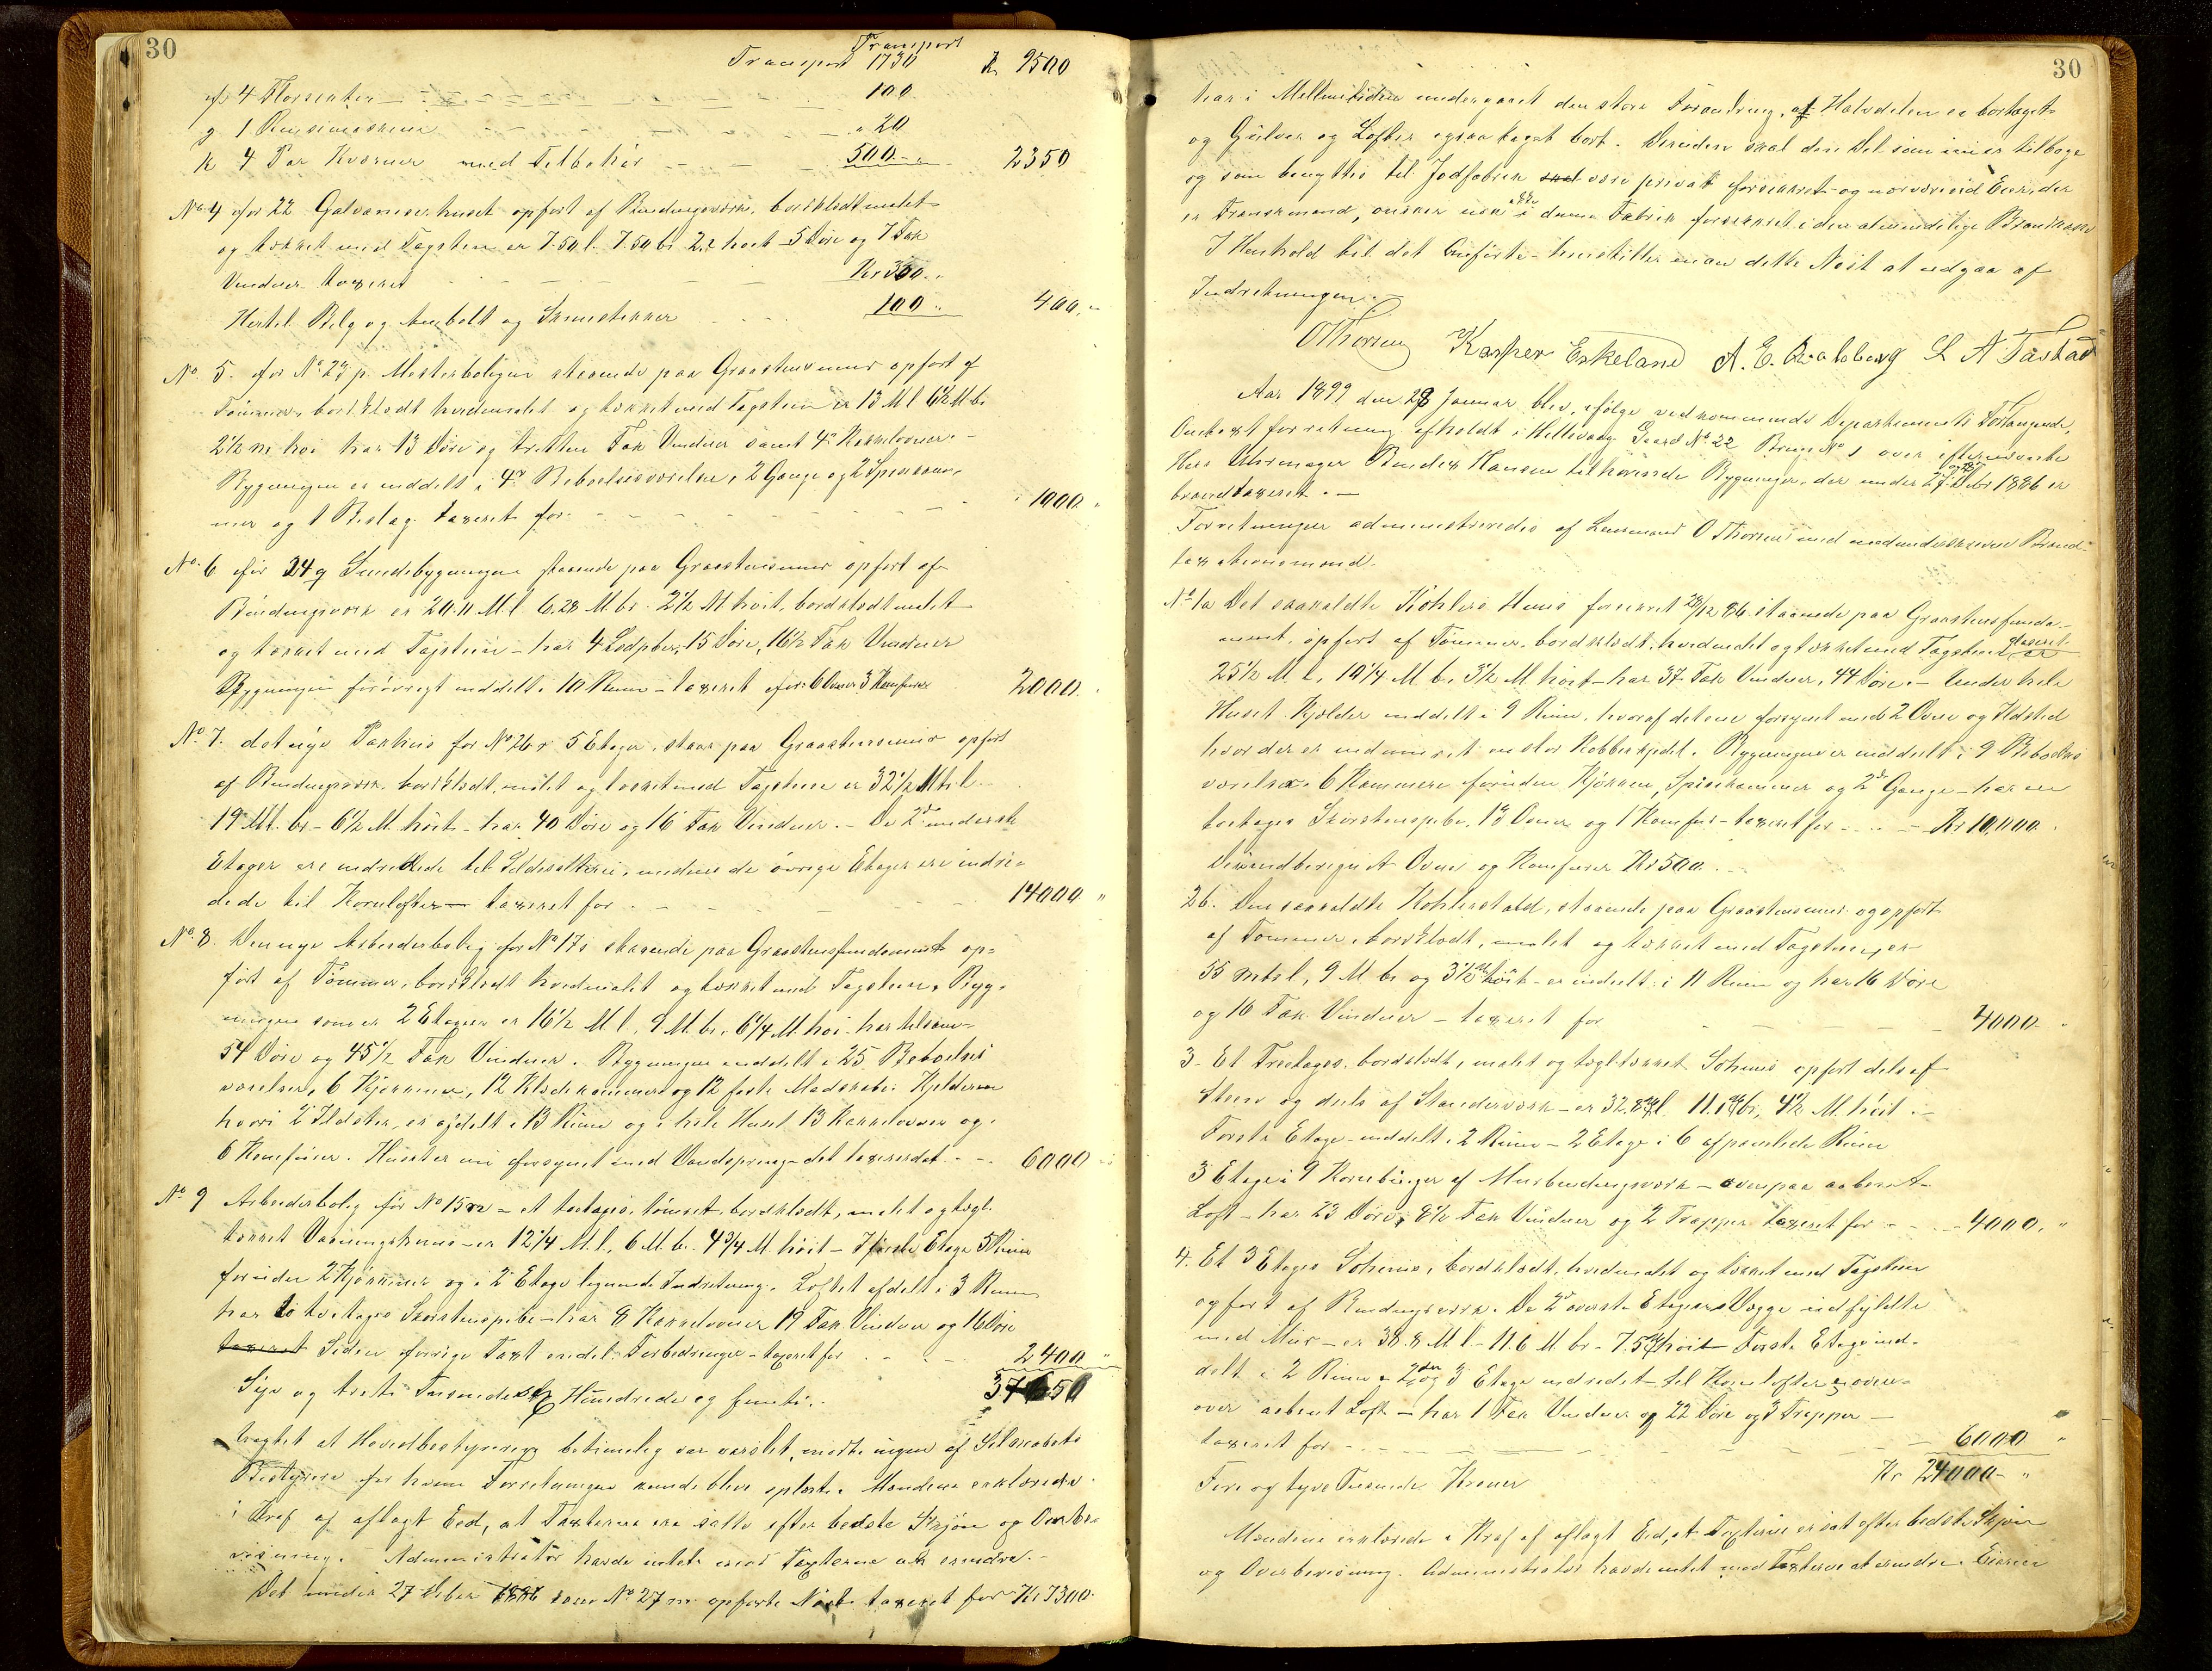 30
Transport
Transport 1730 Kr 9500
f 4 Florsenter 100
g 1 Rensemaskine " 20
h 4 Par Kværner med Tilbehør 500 2350
No 4 før 22 Galvaniserhuset opført af Bindingsværk, bordklædt malet
og tækket med Tagsten er 7.50 l. 7.50 br. 2.2 høit 5 Døre og 7 Fak
Vinduer taxeret Kr 300
Hertil Belg og Ambolt og Skruestikker 100 400
No. 5. før No 23 p. Mesterboligen staaende paa Graastensmur opført af
Tømmer, bordklædt hvidmalet og tækket med Tagsten er 13 M l 6½ M br
2½ m høi har 13 Døre og tretten Fak Vinduer samt 4 Kakkelovner.
Bygningen er inddelt i 4 Beboelsesværelser, 2 Gange og 2 Spiskam-
mer og 1 Beslag. taxeret for 1000
No. 6 før 24 q Smedebygningen staaende paa Graastensmur opført af
Bindingsværk er 20.11 M. l 6.28 M. br. 2½ M høit, bordklædt malet
og tækket med Tagsten - har 4 Lodpiber, 15 Døre, 16½ Fak Vinduer
Bygningen forøvrigt inddelt i 10 Rum - taxeret for: 6 Ovner 3 Komfurer 2000
No. 7. det nye Pakhus før No 26 s 5 Etager, staar paa Graastensmur opført
af Bindingsværk, bordklædt, malet og tækket med Tagsten er 32½ M l
19 M. br - 6½ M. høit - har 40 Døre og 16 Fak Vinduer. - De 2de underste
Etager ere indredede til Sildesalteri, medens de øvrige Etager ere indre-
dede til Kornlofter - taxeret for 14000 "
No. 8. Den nye Arbeiderbolig før No 17 s staaende paa Graastensfundament op-
ført af Tømmer, bordklædt hvidmalet og tækket med Tagsten, Byg-
ningen som er 2 Etager er 16½ M l, 9 M. br, 6¼ M. høi - har tilsam-
54 Døre og 45½ Fak Vinduer. Bygningen inddelt i 25 Beboelses
værelser, 6 Kjøkkener, 12 Klædekammere og 12 faste Madskabe. Kjelderen
hvori 2 Ildsteder, er afdelt i 13 Rum og i hele Huset 13 Kakkelovner og
6 Komfurer. Huset er nu forsynet med Vandspring - det taxeredes 6000
No 9 Arbeiderbolig før No 15 n - et toetages, tømret, bordklædt, malet og tegl-
tækket Vaaningshus - er 12¼ M. l., 6 M. br. 4¾ M. høit - I første Etage 5 Rum
foruden 2 Kjøkkener og i 2 Etage lignende Indretning. Loftet afdelt i 3 Rum
har to toetages Skorstenspibe - har 8 Kakkelovner 19 Fak Vinduer og 16 Døre
taxeret Siden forrige Taxt endel Forbedringer - taxeret for 2400 "
Syv og treti Tusende sex Hundrede og femti 37650
tragtet at Hovedbestyrerige betimelig var varslet, mødte ingen af Selskabets
Bestyrere for hvem Forretningen kunde blive oplæst. Mændene erklærede
i Kraf af aflagt Eed, at Taxterne ere satte efter bedste Skjøn og Overbe-
visning. Administrator havde intet mod Taxterne at erindre.
Det under 27 Decbr 1886 som No 27 m opførte Nøst taxeret for Kr 1300
30
har i Mellemtiden undergaaet den store Forandring, at Halvdelen er borttaget
og Gulver og Lofter ogsaa taget bort. Desuden skal den Del som nu er tilbage
og som benyttes til Jodfabrik skal være privat forsikret og nærværende Eier, der
er Franskmand, ønsker ikke denne Fabrik forsikret i den almindelige Brandkasse
I Henhold til det Anførte henstiller man dette Nøst at udgaa af
Indretningen.
OThorsen Kasper Eskeland A. E. L A Tastad
Aar 1899 den 28 Januar blev, ifølge vedkommende Departements Forlangende,
Omtaxtforretning afholdt i Hellevaag Gaard No 22 Brugs No 1 over efternævnte
Herr Uhrmager Bendix Hansen tilhørende Bygninger, der under 27 og 28 Decbr 1886 er
brandtaxeret.
Forretningen administreredes af Lensmand O Thorsen med medunderskrevne Brand-
taxationsmænd.
No 1a Det saakaldte Köhlers Huus forsikret 28/12 86 staaende paa Graastensfunda-
ment, opført af Tømmer, bordklædt, hvidmalet og tækket med Tagsten er
25½ M l, 10¼ M. b, 3½ M høit - har 37 Fak Vinduer, 44 Døre. - Under hele
Huset Kjelder inddelt i 9 Rum, hvoraf det ene forsynet med 2 Ovne og Ildsted
hvor der er indmuret en stor Kobberkjedel. Bygningen er inddelt i 9 Beboelses
værelser, 6 Kammere foruden Kjøkken, Spisekammer og 2de Gange - har en
toetages Skorstenspibe, 18 Ovner og 1 Komfur - taxeret for Kr 10,000
Deriundberegnet Ovne og Komfurer Kr 500
2 b. Den saakaldte Köhlerstald, staaende paa Graastensmur og opført
af Tømmer, bordklædt, malet og tækket med Tagsten, er
55 Mtr l, 9 M br og 3½ M høit - er inddelt i 11 Rum og har 16 Døre
og 16 Fak Vinduer - taxeret for 4000
3. Et Treetages, bordklædt, malet og tegltækket Søhuus opført dels af
Steen og dels af Standerværk - er 32.8 M l. 11.1 M br, 4½ M. høit
Første Etage inddelt i 2 Rum - 2 Etage i 6 afpanelede Rum
3 Etage i 9 Kornbinger af Murbindingsværk - ovenpaa aabent
Loft - har 23 Døre, 8½ Fak Vinduer og 2 Trapper taxeret for 4000. "
4. Et 3 Etages Søhuus, bordklædt, hvidmalet og tækket med Tagsten
opført af Bindingsværk. De 2de øverste Etagers Vægge indfyldte
med Mur - er 38.8 M l - 11.6 M br - 7.5 M høit - Første Etage ind-
delt i 2 Rum - 2den og 3 Etage indredet til Kornlofter oven-
over aabent Loft - har 1 Fak Vinduer og 22 Døre og 3 Trapper -
taxeret for 6000 "
Fire og tyve Tusende Kroner Kr 24000 - "
Mændene erklærede i Kraf af aflagt Eed, at Taxterne er sat efter bedste Skjøn
og Overbevisning. Administrator havde intet mod Taxterne at erindre. Eieren